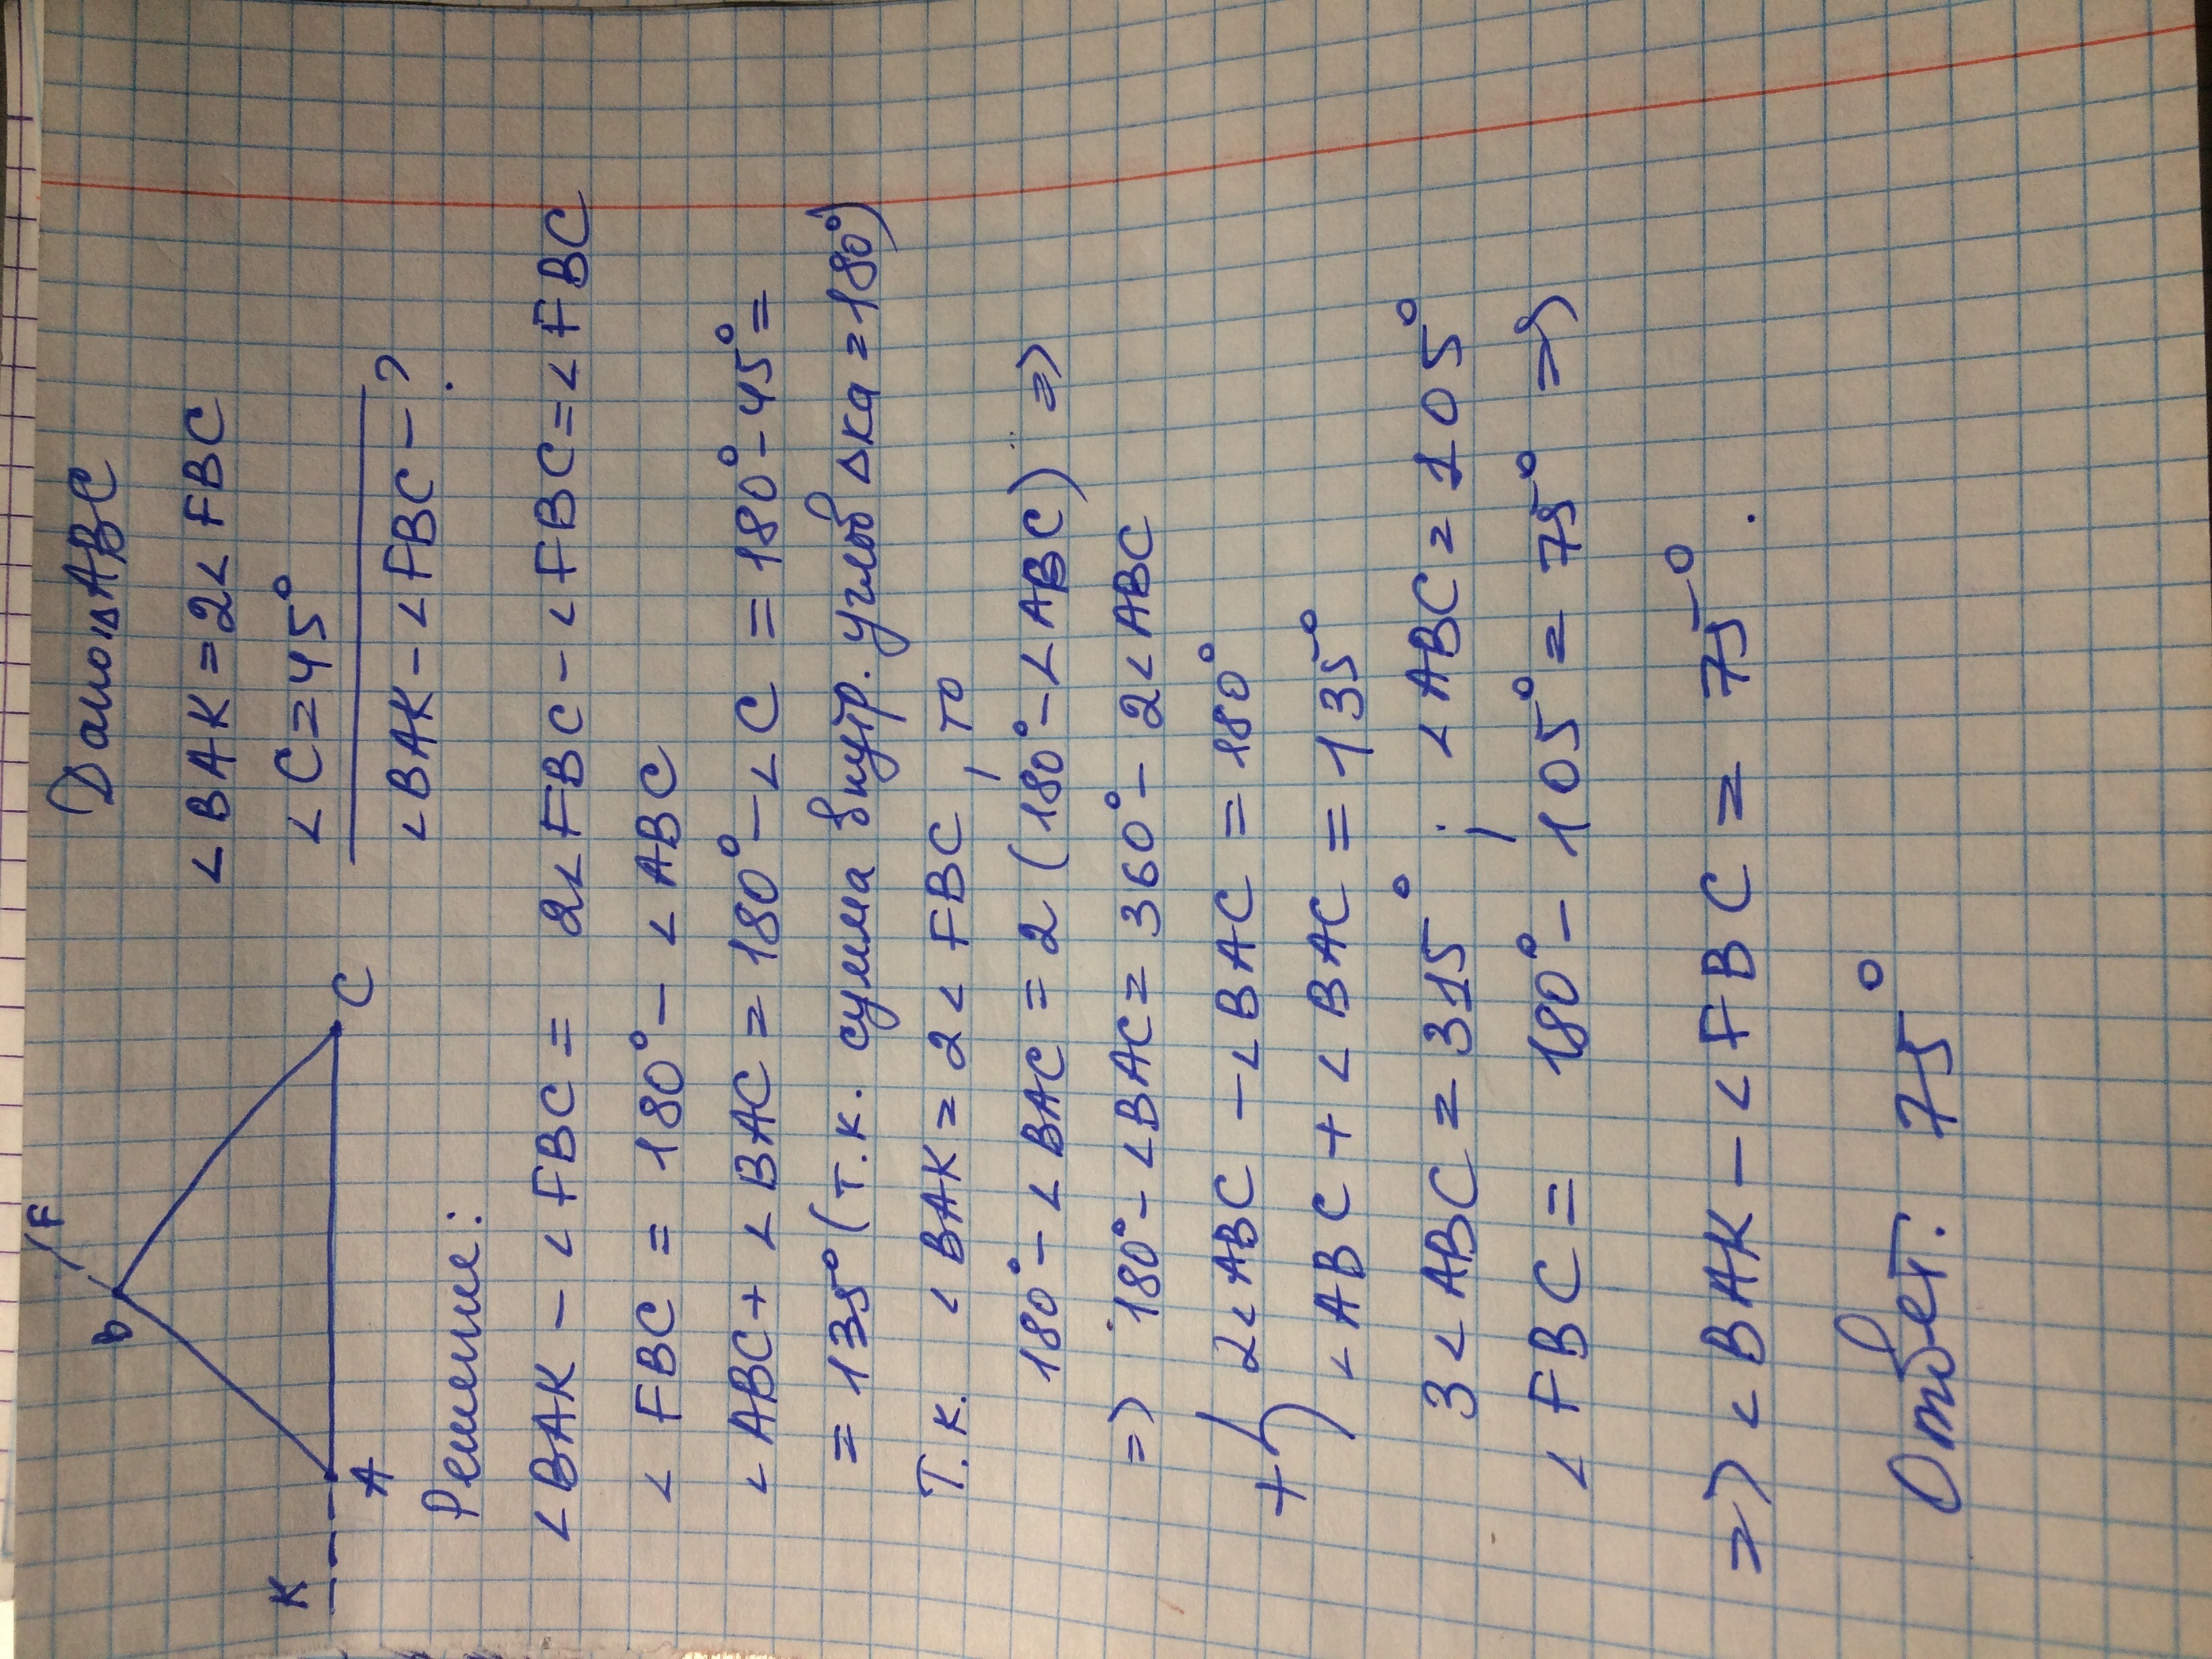 Дано: ΔABC
∠BAK = 2∠FBC
∠C = 45°
∠BAK - ∠FBC - ?
B
F
C
A
K
Решение:
∠BAK - ∠FBC = 2∠FBC - ∠FBC = ∠FBC
∠FBC = 180° - ∠ABC
∠ABC + ∠BAC = 180° - ∠C = 180° - 45° =
= 135° (т.к. сумма внутр. углов Δка = 180°)
Т.к. ∠BAK = 2∠FBC, то
180° - ∠BAC = 2(180° - ∠ABC) =>
=> 180° - ∠BAC = 360° - 2∠ABC
+ { 2∠ABC - ∠BAC = 180°
∠ABC + ∠BAC = 135°
3∠ABC = 315° ; ∠ABC = 105°
∠FBC = 180° - 105° = 75° =>
=> ∠BAK - ∠FBC = 75°.
Ответ: 75°